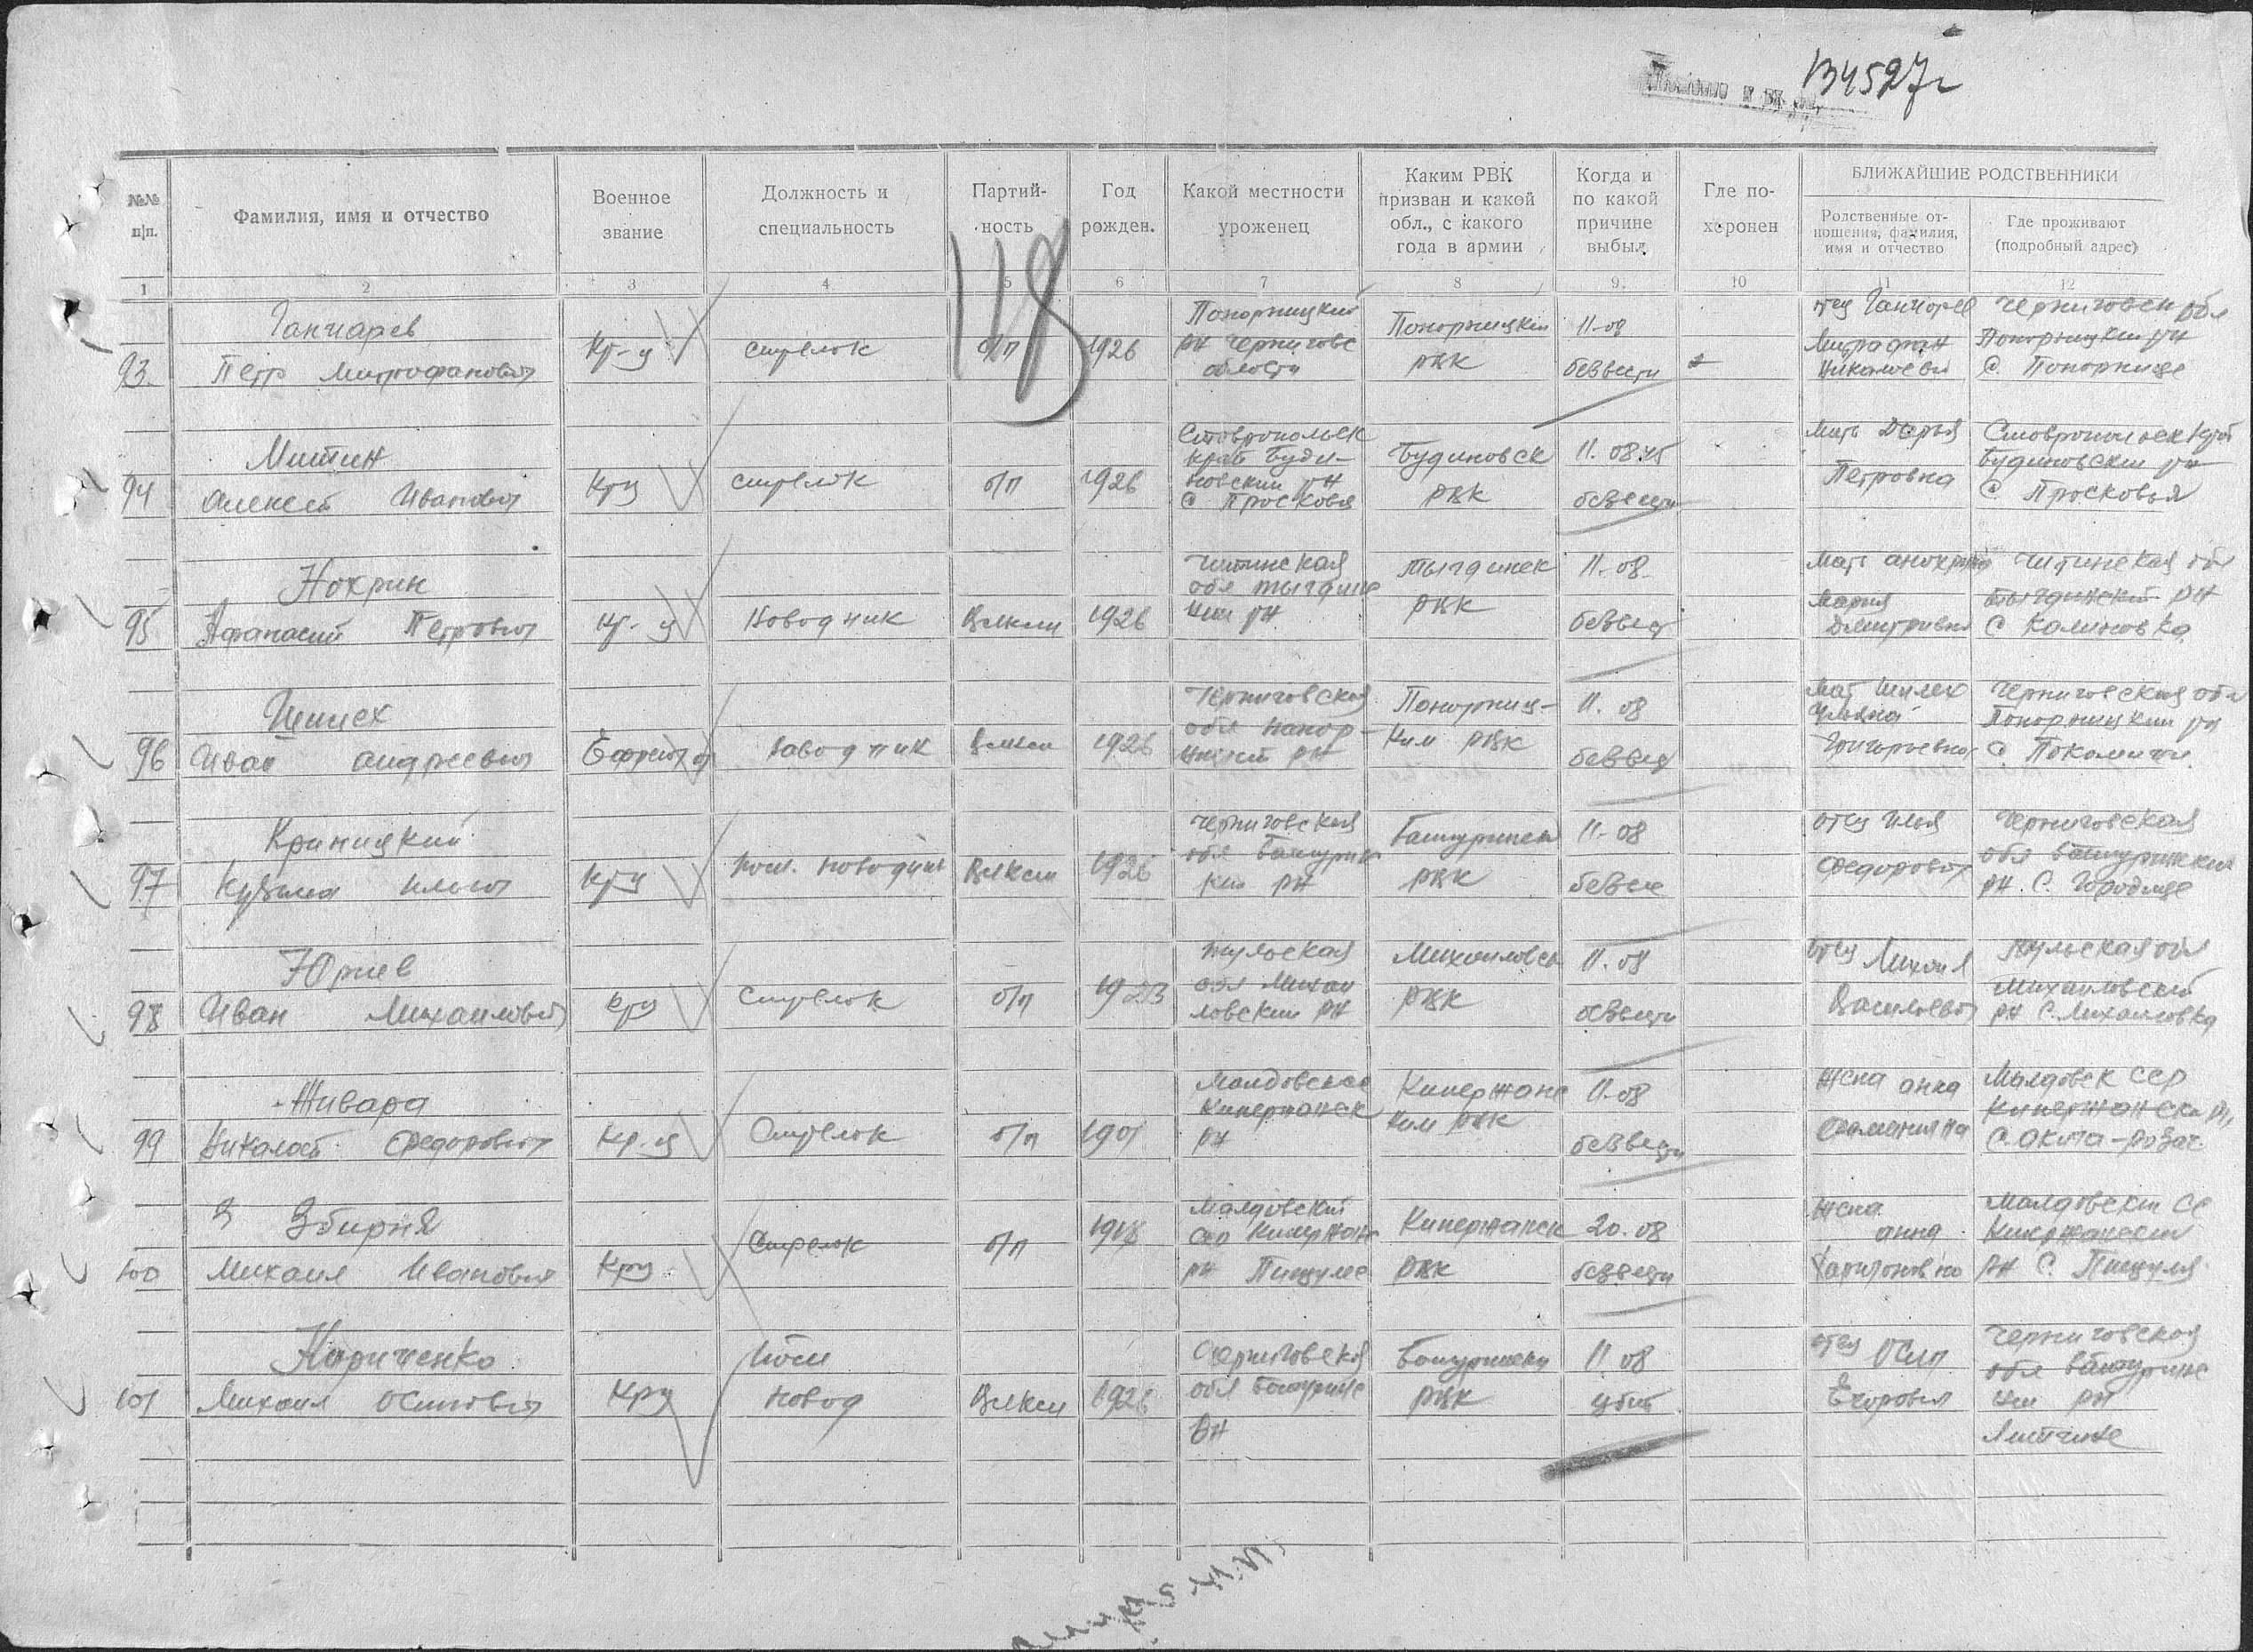 134527с
№№ п|п.
Фамилия, имя и отчество
Военное звание
Должность и специальность
Партий-ность
Год рожден.
Какой местности уроженец
Каким РВК призван и какой обл., с какого года в армии
Когда и по какой причине выбыл
Где по-хоронен
БЛИЖАЙШИЕ РОДСТВЕННИКИ
Родственные от-ношения, фамилия, имя и отчество
Где проживают (подробный адрес)
1 2 3 4 5 6 7 8 9. 10 11 12
118
Ганчарев
93. Петр Митрофанович
Кр-ц
стрелок
б/п
1926
Понорницкий
рн Чернигове
области
Понорницким
РВК
11-08
безвести
отец Ганчарев
Митрофан
Николаеви
Черниговск обл
Понорницким рн
С. Понорнице
Митин
94 Алексей Иванович
Крц
стрелок
б/п
1926
Ставропольск
край Буди-
новским рн
С Просковья
Будиновск
РВК
11. 08.45
безвести
Мать Дарья
Петровна
Будиновским рн
С. Просковья
Нокрин
95 Афанасий Петрович
Кр-ц
Наводчик
Влксм
1926
Читинская
обл тыгдине
ким рн
Тыгдинск
РВК
11.-08.
безвест
Мать
Мария
Дмитривна
Читинская обл
тыгдинский рн
С Калиновка
96 Иван Андреевич
Ефрейтор
Наводчик
Влксм
1926
Черниговская
обл Понор-
ницкий рн
Понорниц-
ким РВК
11. 08
безвест
Мать
Ульяна
Григорьевна
Черниговская обл
Понорницким рн
С.
Криницкий
97 Кузьма Ильич
Крц
пом. наводчик
Влксм
1926
Черниговская
обл Батурин
ким рн
Батуринск
РВК
11.-08
безвес
отец Илья
Федорович
Черниговская
обл Батуринским
рн. С. Городище
Юриев
98 Иван Михаилович
Крц
Стрелок
б/п
1923
тульская
обл Михаи
ловским рн
Михаиловск
РВК
11. 08
безвести
отец Михаил
Васильевич
Тульская обл
Михаиловский
рн С. Михаиловка
Живара
99 Николай Федорович
Кр-ц
Стрелок
б/п
1901
Малдовская
Кипержанск
рн
Кипержанс
ким РВК
11-08
безвести
Жена анна
Малдовск сср
Кипержанским рн,
С.
Збирня
100 Михаил Иванович
Крц
Стрелок
б/п
1908
Малдовский
сср Кипержан
рн
Кипержанск
РВК
20. 08
безвести
Жена
анна
Харитоновна
Малдовским сс
Кипержанским
рн С.
Кириченко
101 Михаил Осипович
Крц
пом
навод
Влксм
1926
Черниговская
обл Батурине
рн
Батуринским
РВК
11 08
убит
отец Осип
Егорович
Черниговская
обл Батурине
ким рн